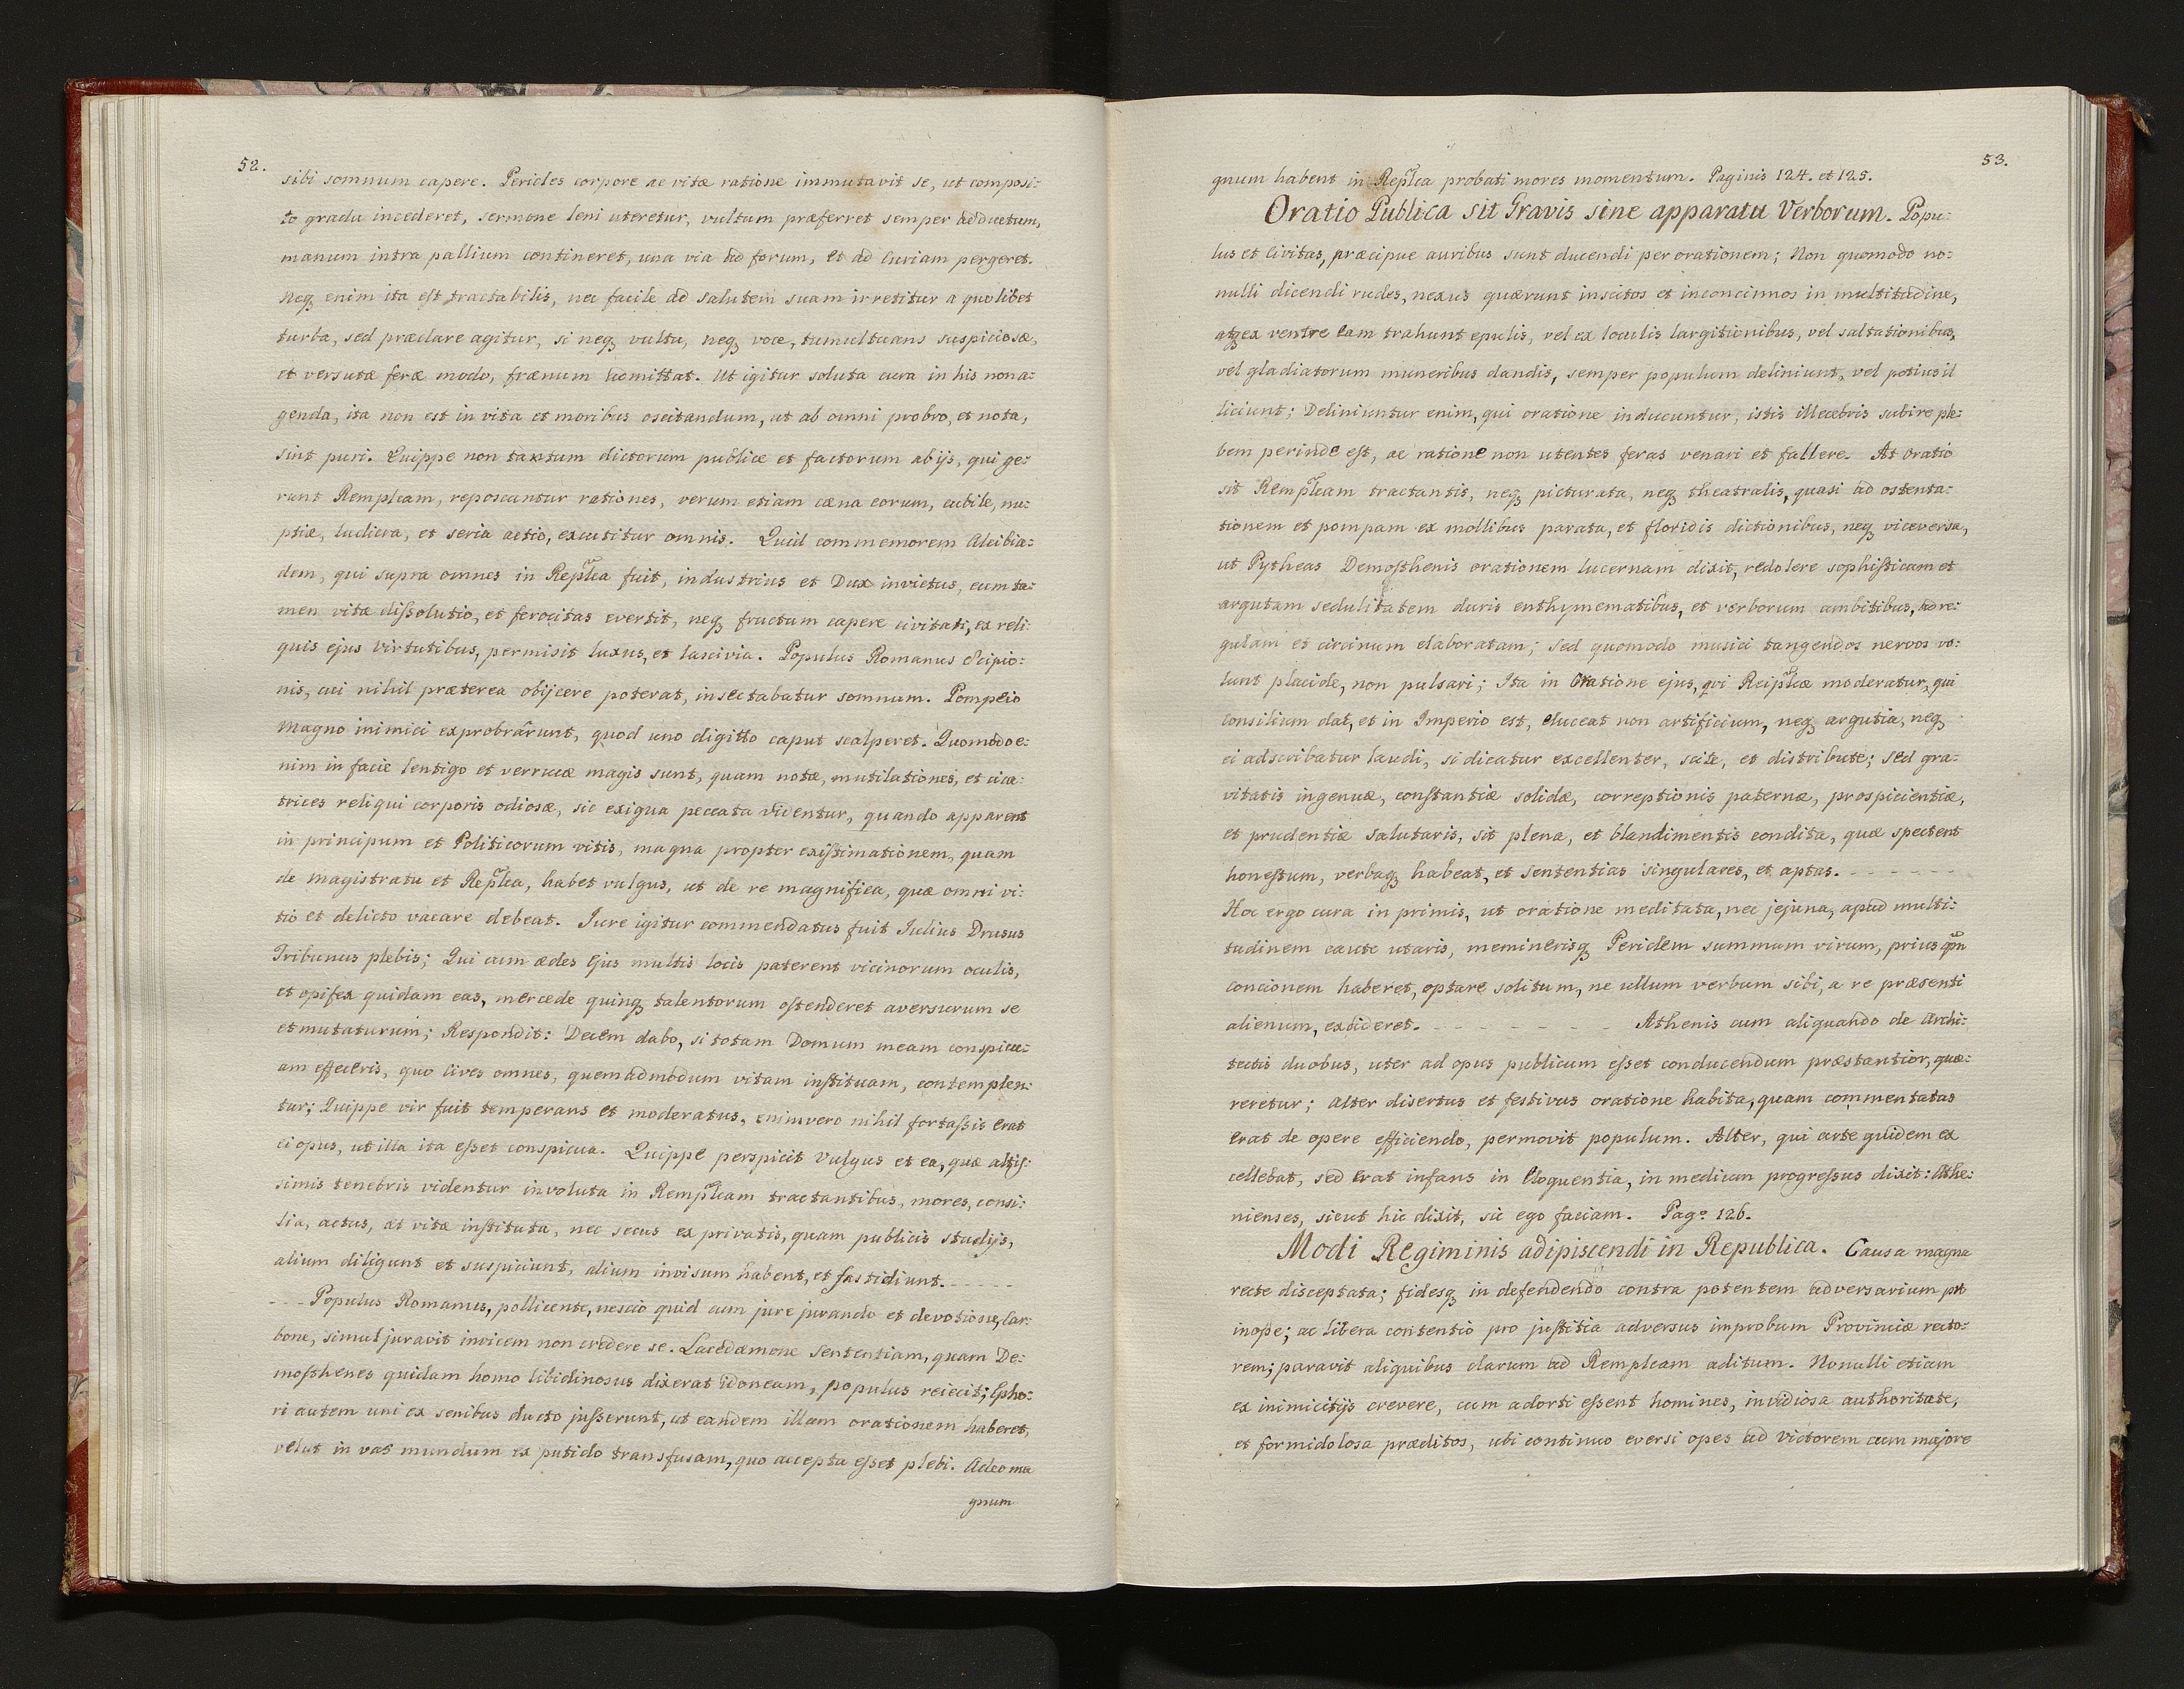 52.
sibi somnum capere. Pericles corpore ac vitæ ratione immutavit se, ut composi:
to gradu incederet, sermone leni uteretur, vultum præferret semper adductum,
manum intra pallium contineret, una via ad forum, et ad Curiam pergeret.
Neq enim ita est tractabilis, nec facile ad salutem suam irretitur a quolibet
turba, sed præclare agitur, si neq vultu, neq voce, tumultuans suspiciosæ,
et versutæ feræ modo, frænum admittat. Ut igitur soluta cura in his non a:
genda, ita non est in vita et moribus oscitandum, ut ab omni probro, et nota,
sint puri. Quippe non tantum dictorum publice et factorum ab ijs, qui ge:
runt Rempleam, reposcuntur rationes, verum etiam cæna eorum, cubile, nu:
ptiæ, ludicra, et seria actio, excutitur omnis. Quid commemorem Alcibia:
dem, qui supra omnes in Replea fuit, industrius et Dux invictus, eum ta:
men vitæ dissolutio, et ferocitas evertit, neq fructum capere civitati, ex reli:
quis ejus virtutibus, permisit luxus, et lascivia. Populus Romanus Scipio:
nis, cui nihil præterea obijcere poterat, insectabatur somnum. Pompeio
Magno inimici exprobrârunt, quod uno digitto caput scalperet. Quomodo e:
nim in facie lentigo et verrucæ magis sunt, quam notæ, mutilationes, et cica:
trices reliqui corporis odiosæ, sic exigua peccata videntur, quando apparent
in principum et Politicorum vitis, magna propter existimationem, quam
de magistratu et Replea, habet vulgus, ut de re magnifica, quæ omni vi:
tio et delicto vacare debeat. Jure igitur commendatus fuit Julius Drusus
Tribunus plebis; Qui cum ædes ejus multis locis paterent vicinorum oculis,
et opifex quidam eas, mercede quinq talentorum ostenderet aversurum se
et mutaturum; Respondit: Decem dabo, si totam Domum meam conspicu:
am effeceris, quo cives omnes, quemadmodum vitam instituam, contemplen:
tur; Quippe vir fuit temperans et moderatus, enimvero nihil fortassis erat
ei opus, ut illa ita esset conspicua. Quippe perspicit vulgus et ea, quæ altis:
simis tenebris videntur involuta in Rempleam tractantibus, mores, consi:
lia, actus, at vitæ instituta, nec secus ex privatis, quam publicis studijs,
alium diligunt et suspiciunt, alium invisum habent, et fastidiunt. - - - - -
- - - Populus Romanus, pollicente, nescio quid cum jure jurando et devotione, Car:
bone, simul juravit invicem non credere se. Lacedæmone Sententiam, quam De:
mosthenes quidam homo libidinosus dixerat idoneam, populus reiecit; Epho:
ri autem uni ex senibus ducto jusserunt, ut eandem illam orationem haberet,
velut in vas mundum ex putido transfusam, quo accepta esset plebi. Adeo ma
gnum
53.
gnum habent in Replea probati mores momentum. Paginis 124. et 125.
Oratio Publica sit Gravis sine apparatu Verborum. Popu:
lus et Civitas, præcipue auribus sunt ducendi per orationem; Non quomodo no:
nulli dicendi rudes, nexus quærunt inscitos et inconcinnos in multitudine,
atq ex ventre eam trahunt epulis, vel ex loculis largitionibus, vel saltationibus,
vel gladiatorum muneribus dandis, semper populum deliniunt, vel potius il
liciunt; Deliniuntur enim, qui oratione inducuntur, istis illecebris subire ple:
bem perinde est, ac ratione non utentes feras venari et fallere. At oratio
sit Rempleam tractantis, neq picturata, neq theatralis, quasi ad ostenta:
tionem et pompam ex mollibus parata, et floridis dictionibus, neq viceversa,
ut Pytheas Demosthenis orationem lucernam dixit, redolere sophisticam et
argutam sedulitatem duris enthymematibus, et verborum ambitibus, ad re:
gulam et circinum elaboratam; Sed quomodo musici tangendos nervos vo:
lunt placide, non pulsari; Ita in Oratione ejus, qvi Reipleæ moderatur, qui
consilium dat, et in Imperio est, eluceat non artificium, neq argutia, neq
ei adscribatur laudi, si dicatur excellenter, scite, et distribute; sed gra:
vitatis ingenuæ, constantiæ solidæ, correptionis paternæ, prospicientiæ,
et prudentiæ salutaris, sit plena, et blandimentis condita, quæ spectent
honestum, verbaq habeat, et sententias singulares, et aptas. - - - - - -
Hoc ergo cura in primis, ut oratione meditata, nec jejuna, apud multi:
tudinem caute utaris, meminerisq Periclem summum virum, prius qm
concionem haberet, optare solitum, ne ullum verbum sibi, a re præsenti
alienum, excideret. - - - - - - - Athenis cum aliquando de Archi:
tectis duobus, uter ad opus publicum esset conducendum præstantior, quæ:
reretur; Alter disertus et festivus oratione habita, quam commentatus
erat de opere efficiendo, permovit populum. Alter, qui arte quidem ex
cellebat, sed erat infans in Eloquentia, in medium progressus dixit: Athe:
nienses, sicut hic dixit, sic ego faciam. Pag.ᵃ 126.
Modi Regiminis adipiscendi in Republica. Causa magna
recte disceptata; fidesq in defendendo contra potentem adversarium pro
inope; ac libera contentio pro justitia adversus improbum Provinciæ recto:
rem; paravit aliquibus clarum ad Rempleam aditum. Nonulli etiam
ex inimicitijs crevere, cum adorti essent homines, invidiosa authoritate,
et formidolosa præditos, ubi continuo eversi opes ad victorem cum majore